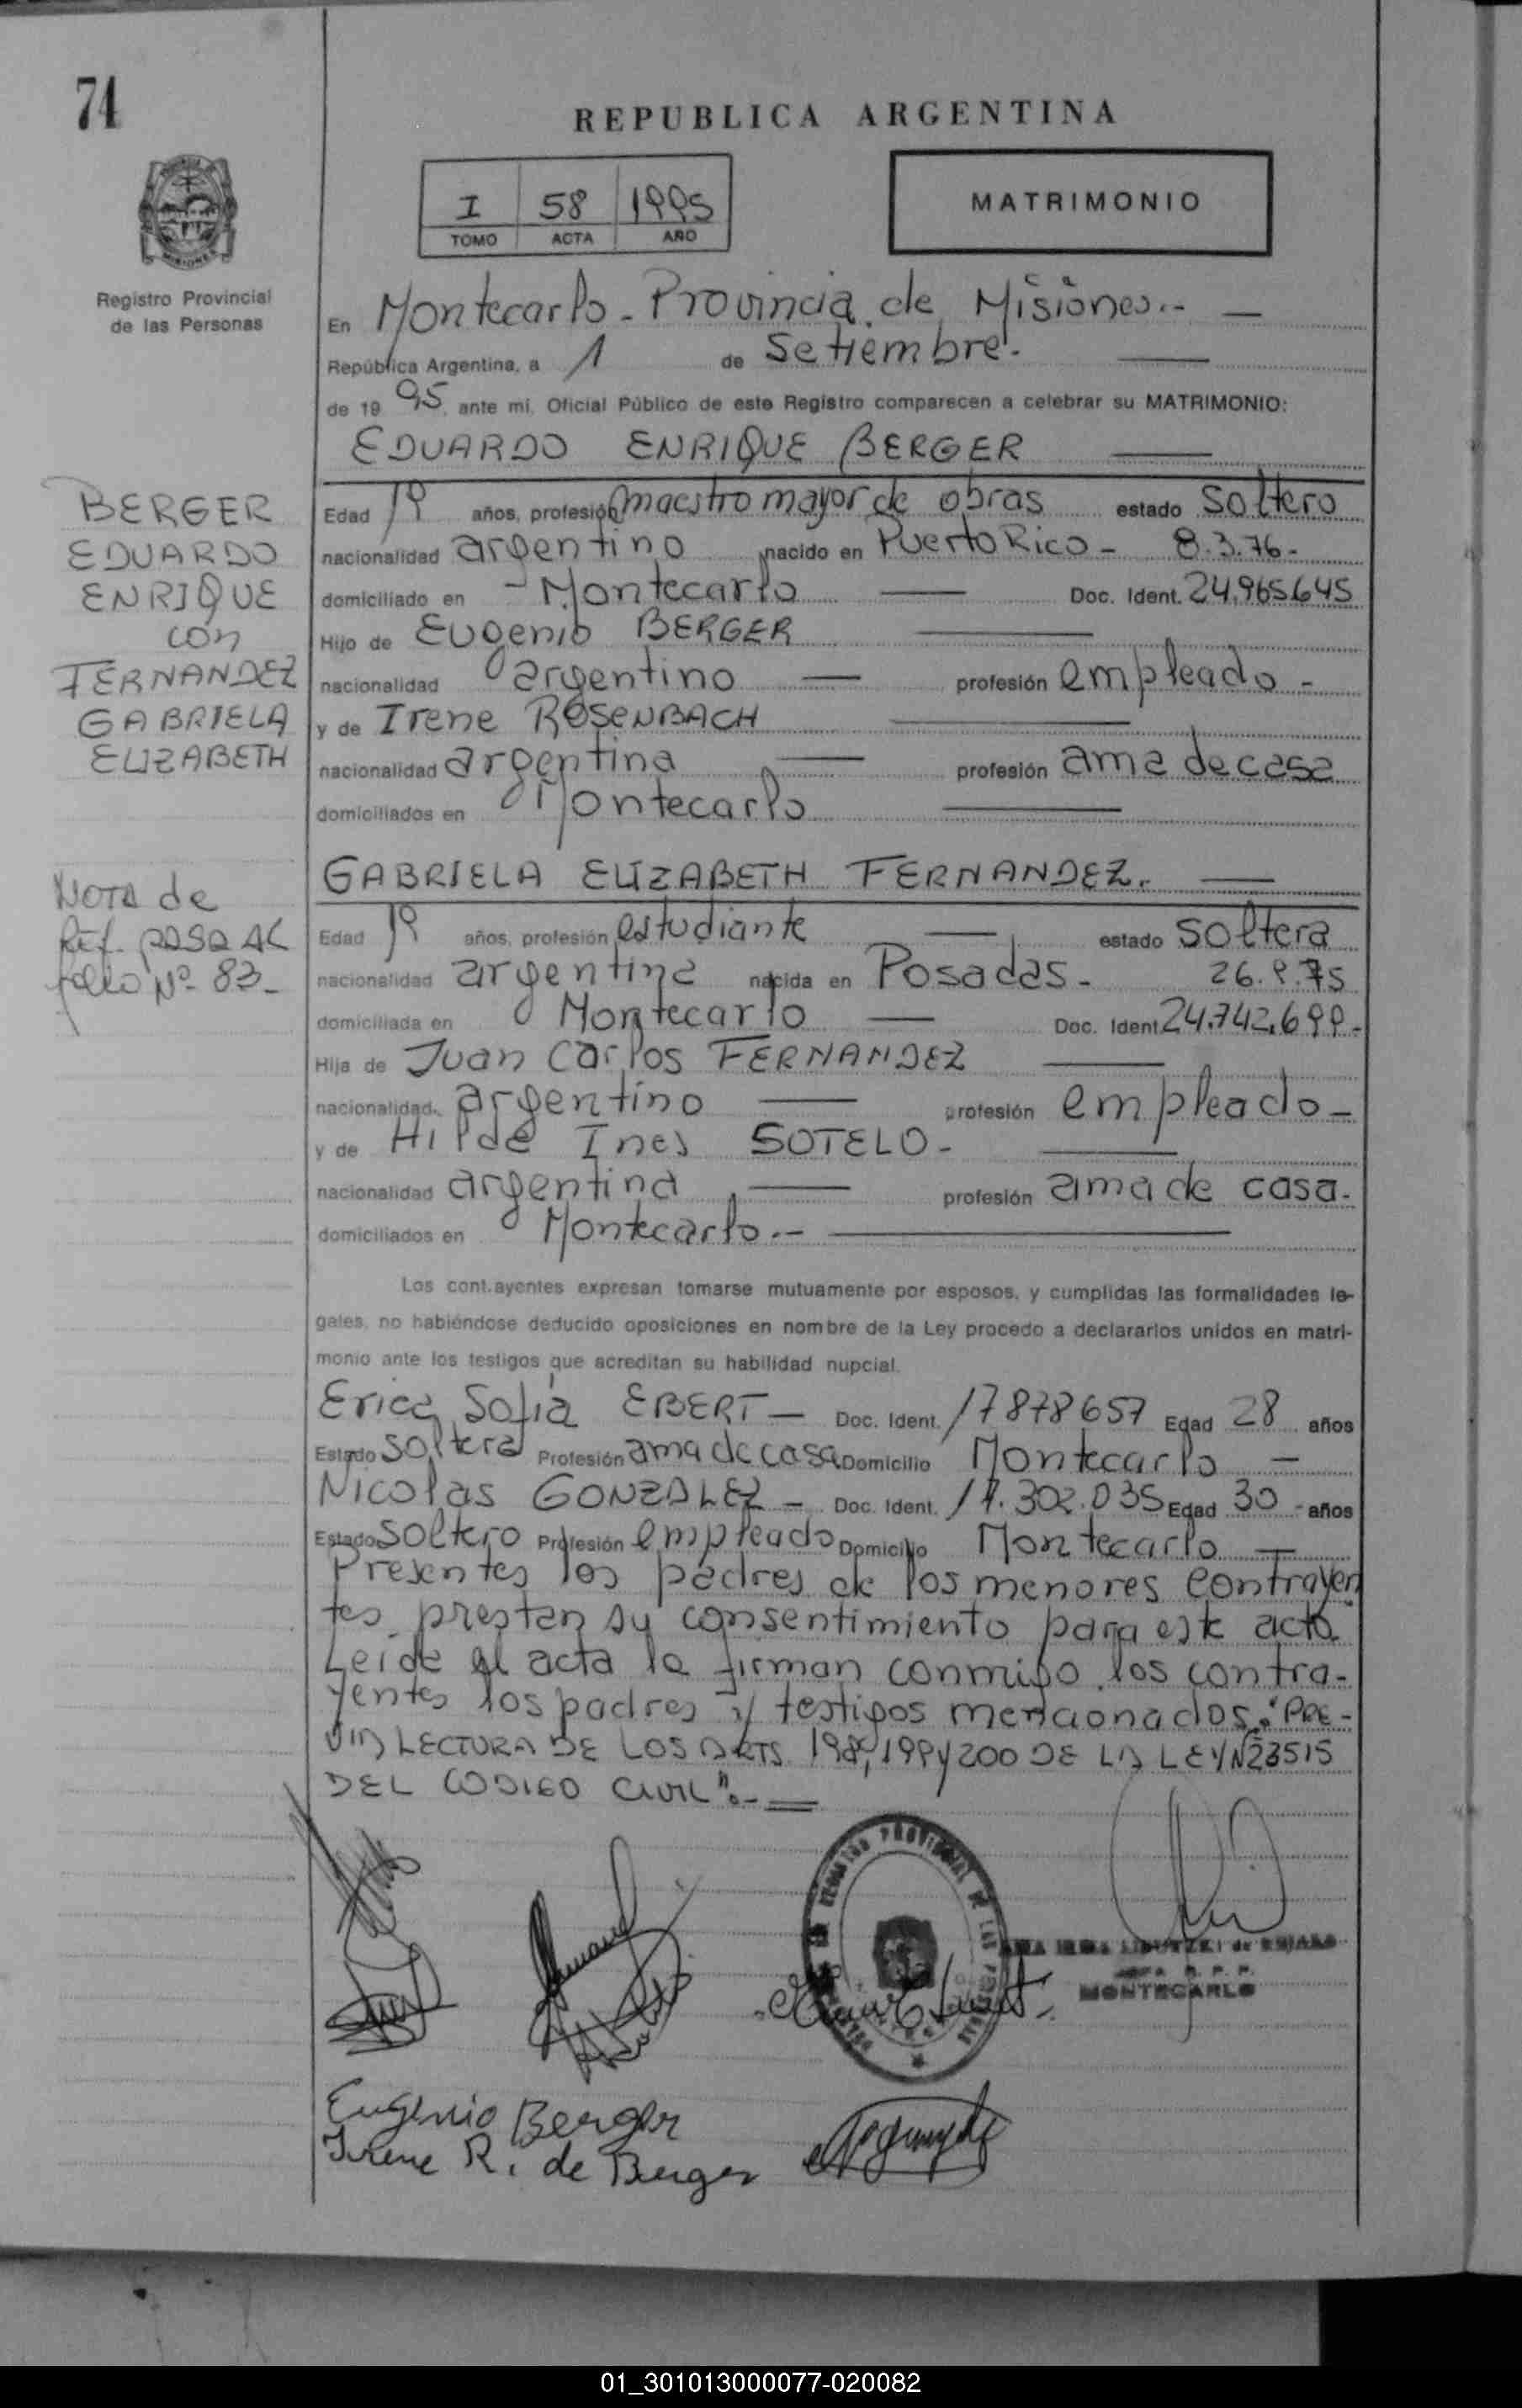 74
REPUBLICA ARGENTINA
I 58 1995
TOMO ACTA AÑO
MATRIMONIO
Registro Provincial
de las Personas
En Montecarlo - Provincia de Misiones.- —
República Argentina, a 1 de Setiembre.-
de 1995, ante mí, Oficial Público de este Registro comparecen a celebrar su MATRIMONIO:
EDUARDO ENRIQUE BERGER
BERGER
EDUARDO
ENRIQUE
con
FERNANDEZ
GABRIELA
ELIZABETH
Edad 19 años, profesión maestro mayor de obras estado soltero
nacionalidad argentino nacido en Puerto Rico - 8.3.76-
domiciliado en - Montecarlo — Doc. Ident. 24.965.645
Hijo de Eugenio BERGER
nacionalidad argentino — profesión empleado -
y de Irene ROSENBACH
nacionalidad argentina — profesión ama de casa
domiciliados en Montecarlo
GABRIELA ELIZABETH FERNANDEZ. —
NOTA de
Ref. PASA AL
folio Nº 83-
Edad 19 años, profesión estudiante — estado soltera
nacionalidad argentina nacida en Posadas - 26.9.75
domiciliada en Montecarlo — Doc. Ident. 24.742.699-
Hija de Juan Carlos FERNANDEZ
nacionalidad argentino — profesión empleado -
y de Hilda Ines SOTELO -
nacionalidad argentina — profesión ama de casa.
domiciliados en Montecarlo.-
Los contrayentes expresan tomarse mutuamente por esposos, y cumplidas las formalidades le-
gales, no habiéndose deducido oposiciones en nombre de la Ley procedo a declararlos unidos en matri-
monio ante los testigos que acreditan su habilidad nupcial.
Erica Sofia EBERT - Doc. Ident. 17878657 Edad 28 años
Estado soltera Profesión ama de casa Domicilio Montecarlo —
Nicolas GONZALEZ - Doc. Ident. 17.302.035 Edad 30 años
Estado soltero Profesión empleado Domicilio Montecarlo —
Presentes los padres de los menores contrayen
tes prestan su consentimiento para este acto.
Leida el acta la firman conmigo, los contra-
yentes los padres y testigos mencionados: "PRE-
VIA LECTURA DE LOS ARTS 198, 199 y 200 DE LA LEY Nº 23515
DEL CODIGO CIVIL".-
MONTECARLO
Eugenio Berger
Irene R. de Berger
01_301013000077-020082